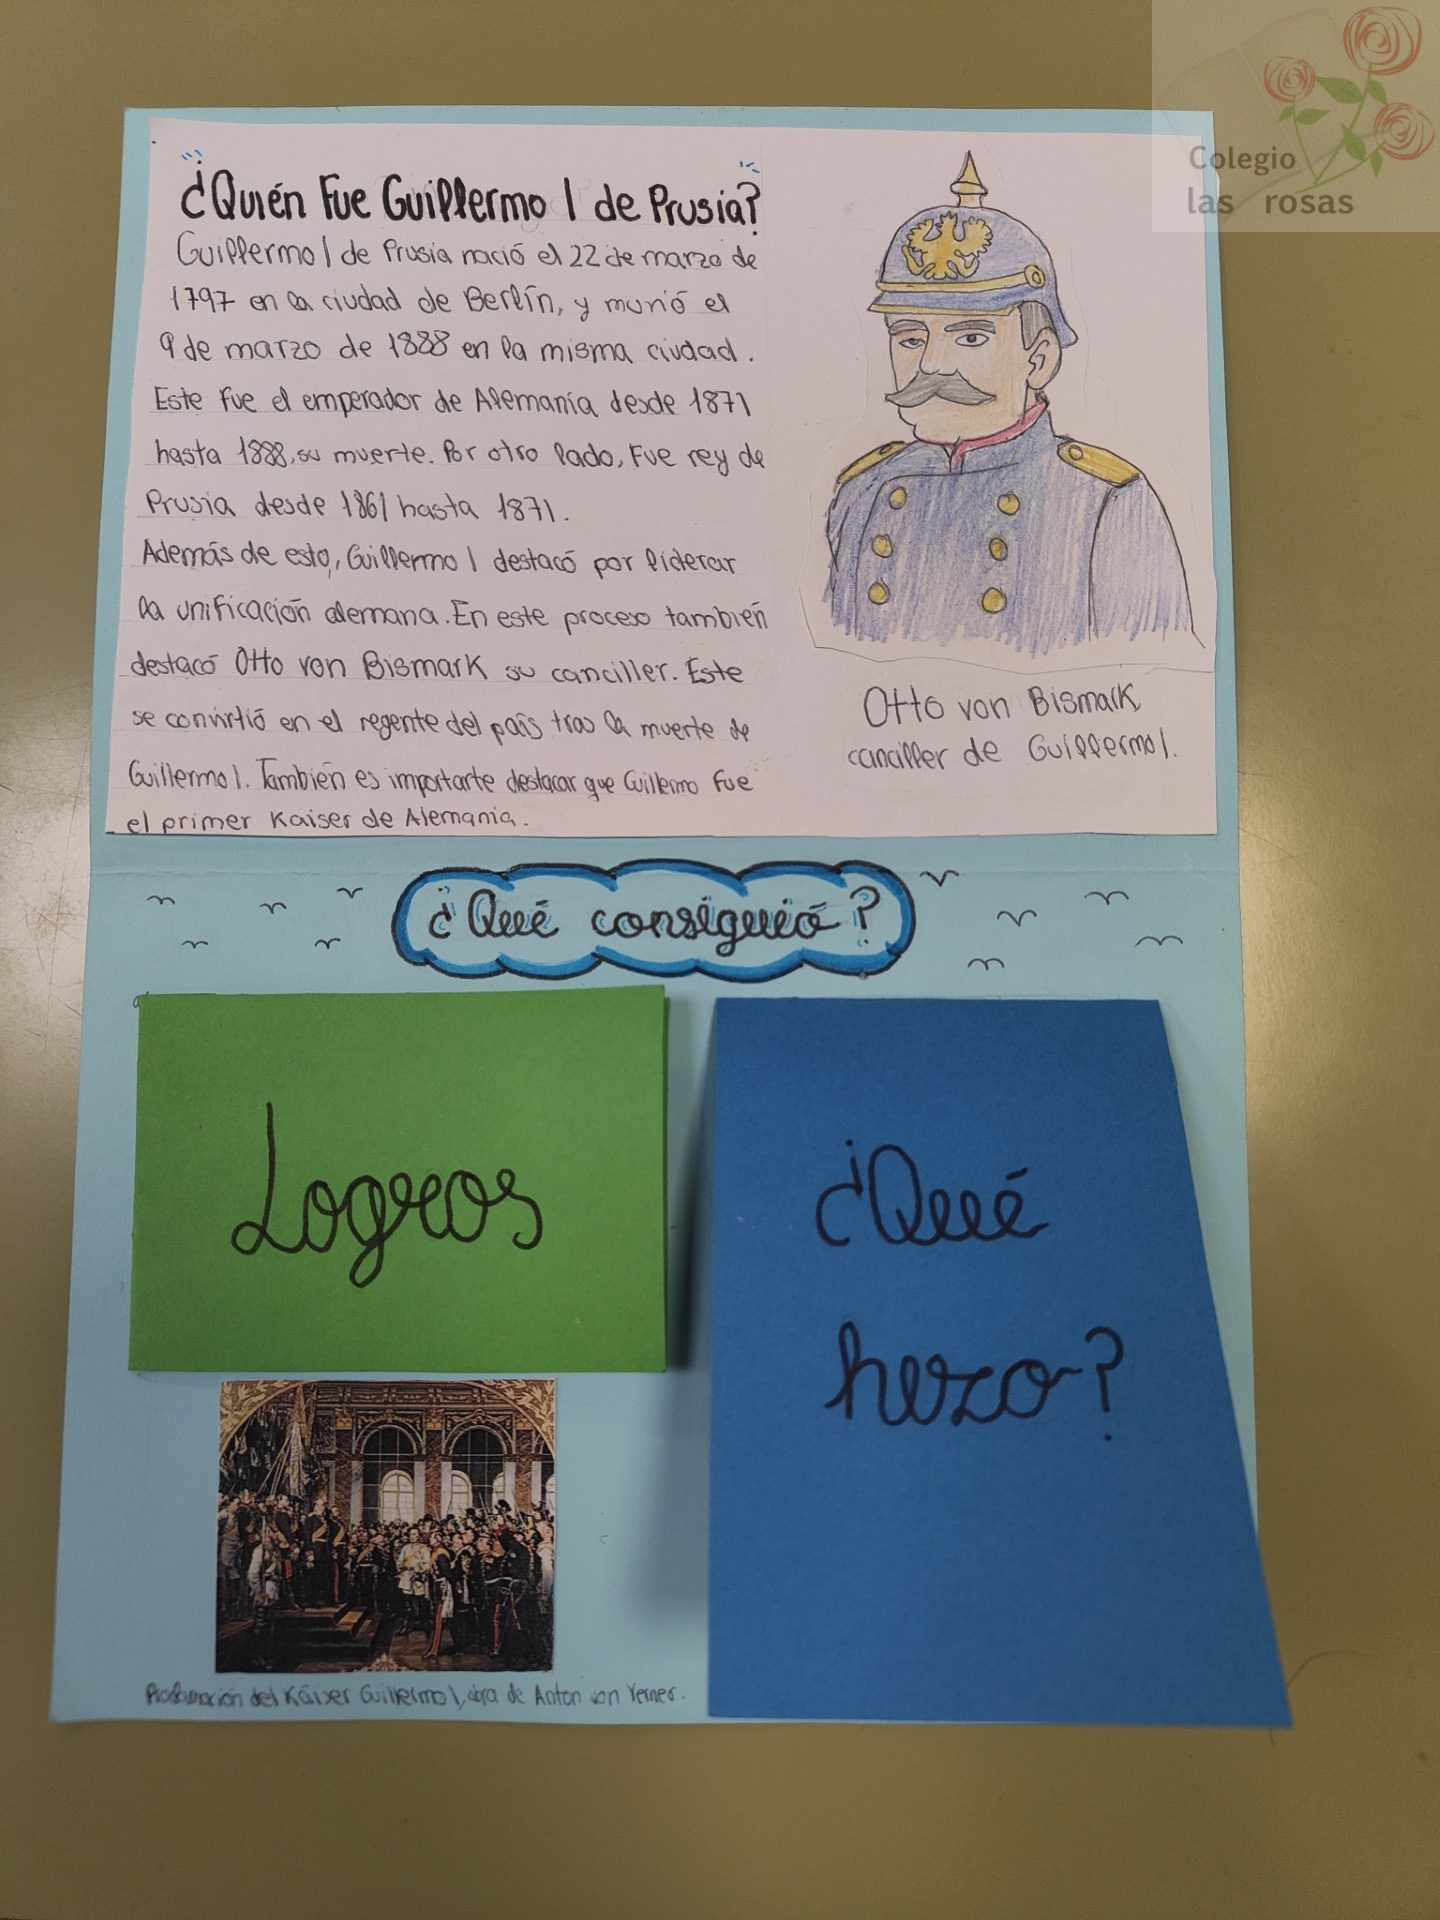 Colegio
las rosas
¿Quién Fue Guillermo I de Prusia?
Guillermo I de Prusia nació el 22 de marzo de
1797 en la ciudad de Berlín, y murió el
9 de marzo de 1888 en la misma ciudad.
Este fue el emperador de Alemania desde 1871
hasta 1888, su muerte. Por otro lado, Fue rey de
Prusia desde 1861 hasta 1871.
Además de esto, Guillermo I destacó por liderar
la unificación alemana. En este proceso también
destacó Otto von Bismark su canciller. Este
se convirtió en el regente del país tras la muerte de
Guillermo I. También es importante destacar que Guillermo Fue
el primer Kaiser de Alemania.
Otto von Bismark,
canciller de Guillermo I.
¿Qué consiguió?
Logros
¿Qué
hizo?
Proclamación del Káiser Guillermo I, obra de Anton von Verner.